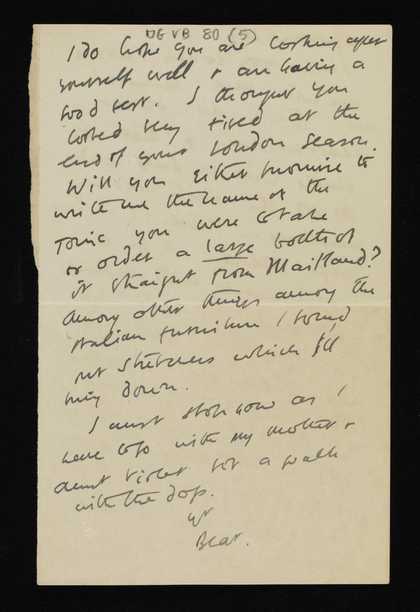 UG VB 80 (5)
I do hope you are looking after
yourself well & are having a
good rest. I thought you
looked very tired at the
end of your London season.
Will you either promise to
write me the name of the
tonic you were to take
or order a large bottle of
it straight from Maitland?
Among other things among the
Italian furniture I found
stretchers which I'll
bring down.
I must stop now as I
have to go with my mother &
Aunt Violet for a walk
with the dogs.
yr
Bear.